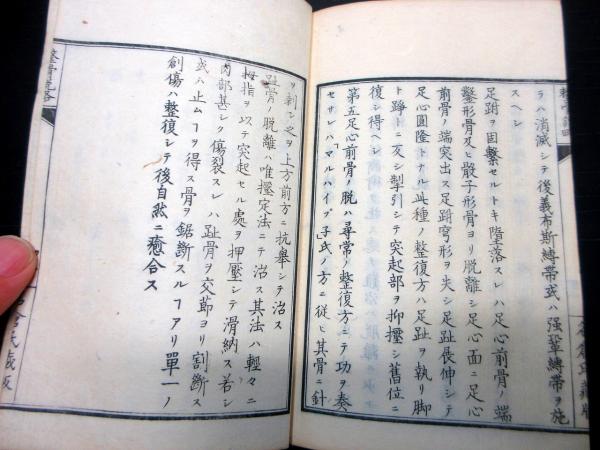 ラハ消滅シテ後義布斯縛帯或ハ强鞏縛帯ヲ施
スヘシ
足跗ヲ固繫セルトキ墜落スレハ足心前骨ノ端
鑿形骨及ヒ骰子形骨ヨリ脱離シ足心面ニ足心
前骨ノ端突出ス足跗穹形ヲ失シ足趾展伸シテ
足心圓隆トナル此種ノ整復方ハ足趾ヲ執リ脚
ト踭トニ反シ掣引シテ突起部ヲ抑壓シ舊位ニ
復シ得ヘシ
第五足心前骨ノ脱ハ尋常ノ整復方ニテ功ヲ奏
セサレハ「マルハイプ」子氏ノ方ニ従ヒ其骨ニ針
ヲ刺シ之ヲ上方前方ニ抗擧シテ治ス
趾骨ノ脱離ハ唯擡定法ニテ治ス其法ハ輕々ニ
拇指ヲ以テ突起セル處ヲ押壓シテ滑納ス若シ
肉部甚シク傷裂スレハ趾骨ヲ交節ヨリ割斷ス
或ハ止ムヿヲ得ス骨ヲ鋸斷スルヿアリ單一ノ
創傷ハ整復シテ後自然ニ癒合ス